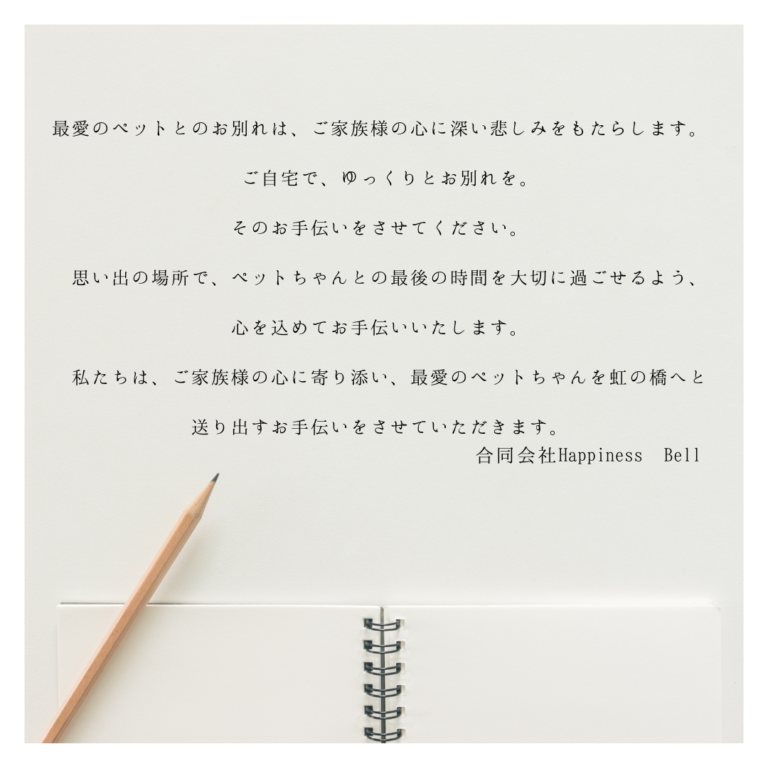 最愛のペットとのお別れは、ご家族様の心に深い悲しみをもたらします。
ご自宅で、ゆっくりとお別れを。
そのお手伝いをさせてください。
思い出の場所で、ペットちゃんとの最後の時間を大切に過ごせるよう、
心を込めてお手伝いいたします。
私たちは、ご家族様の心に寄り添い、最愛のペットちゃんを虹の橋へと
送り出すお手伝いをさせていただきます。
合同会社Happiness　Bell